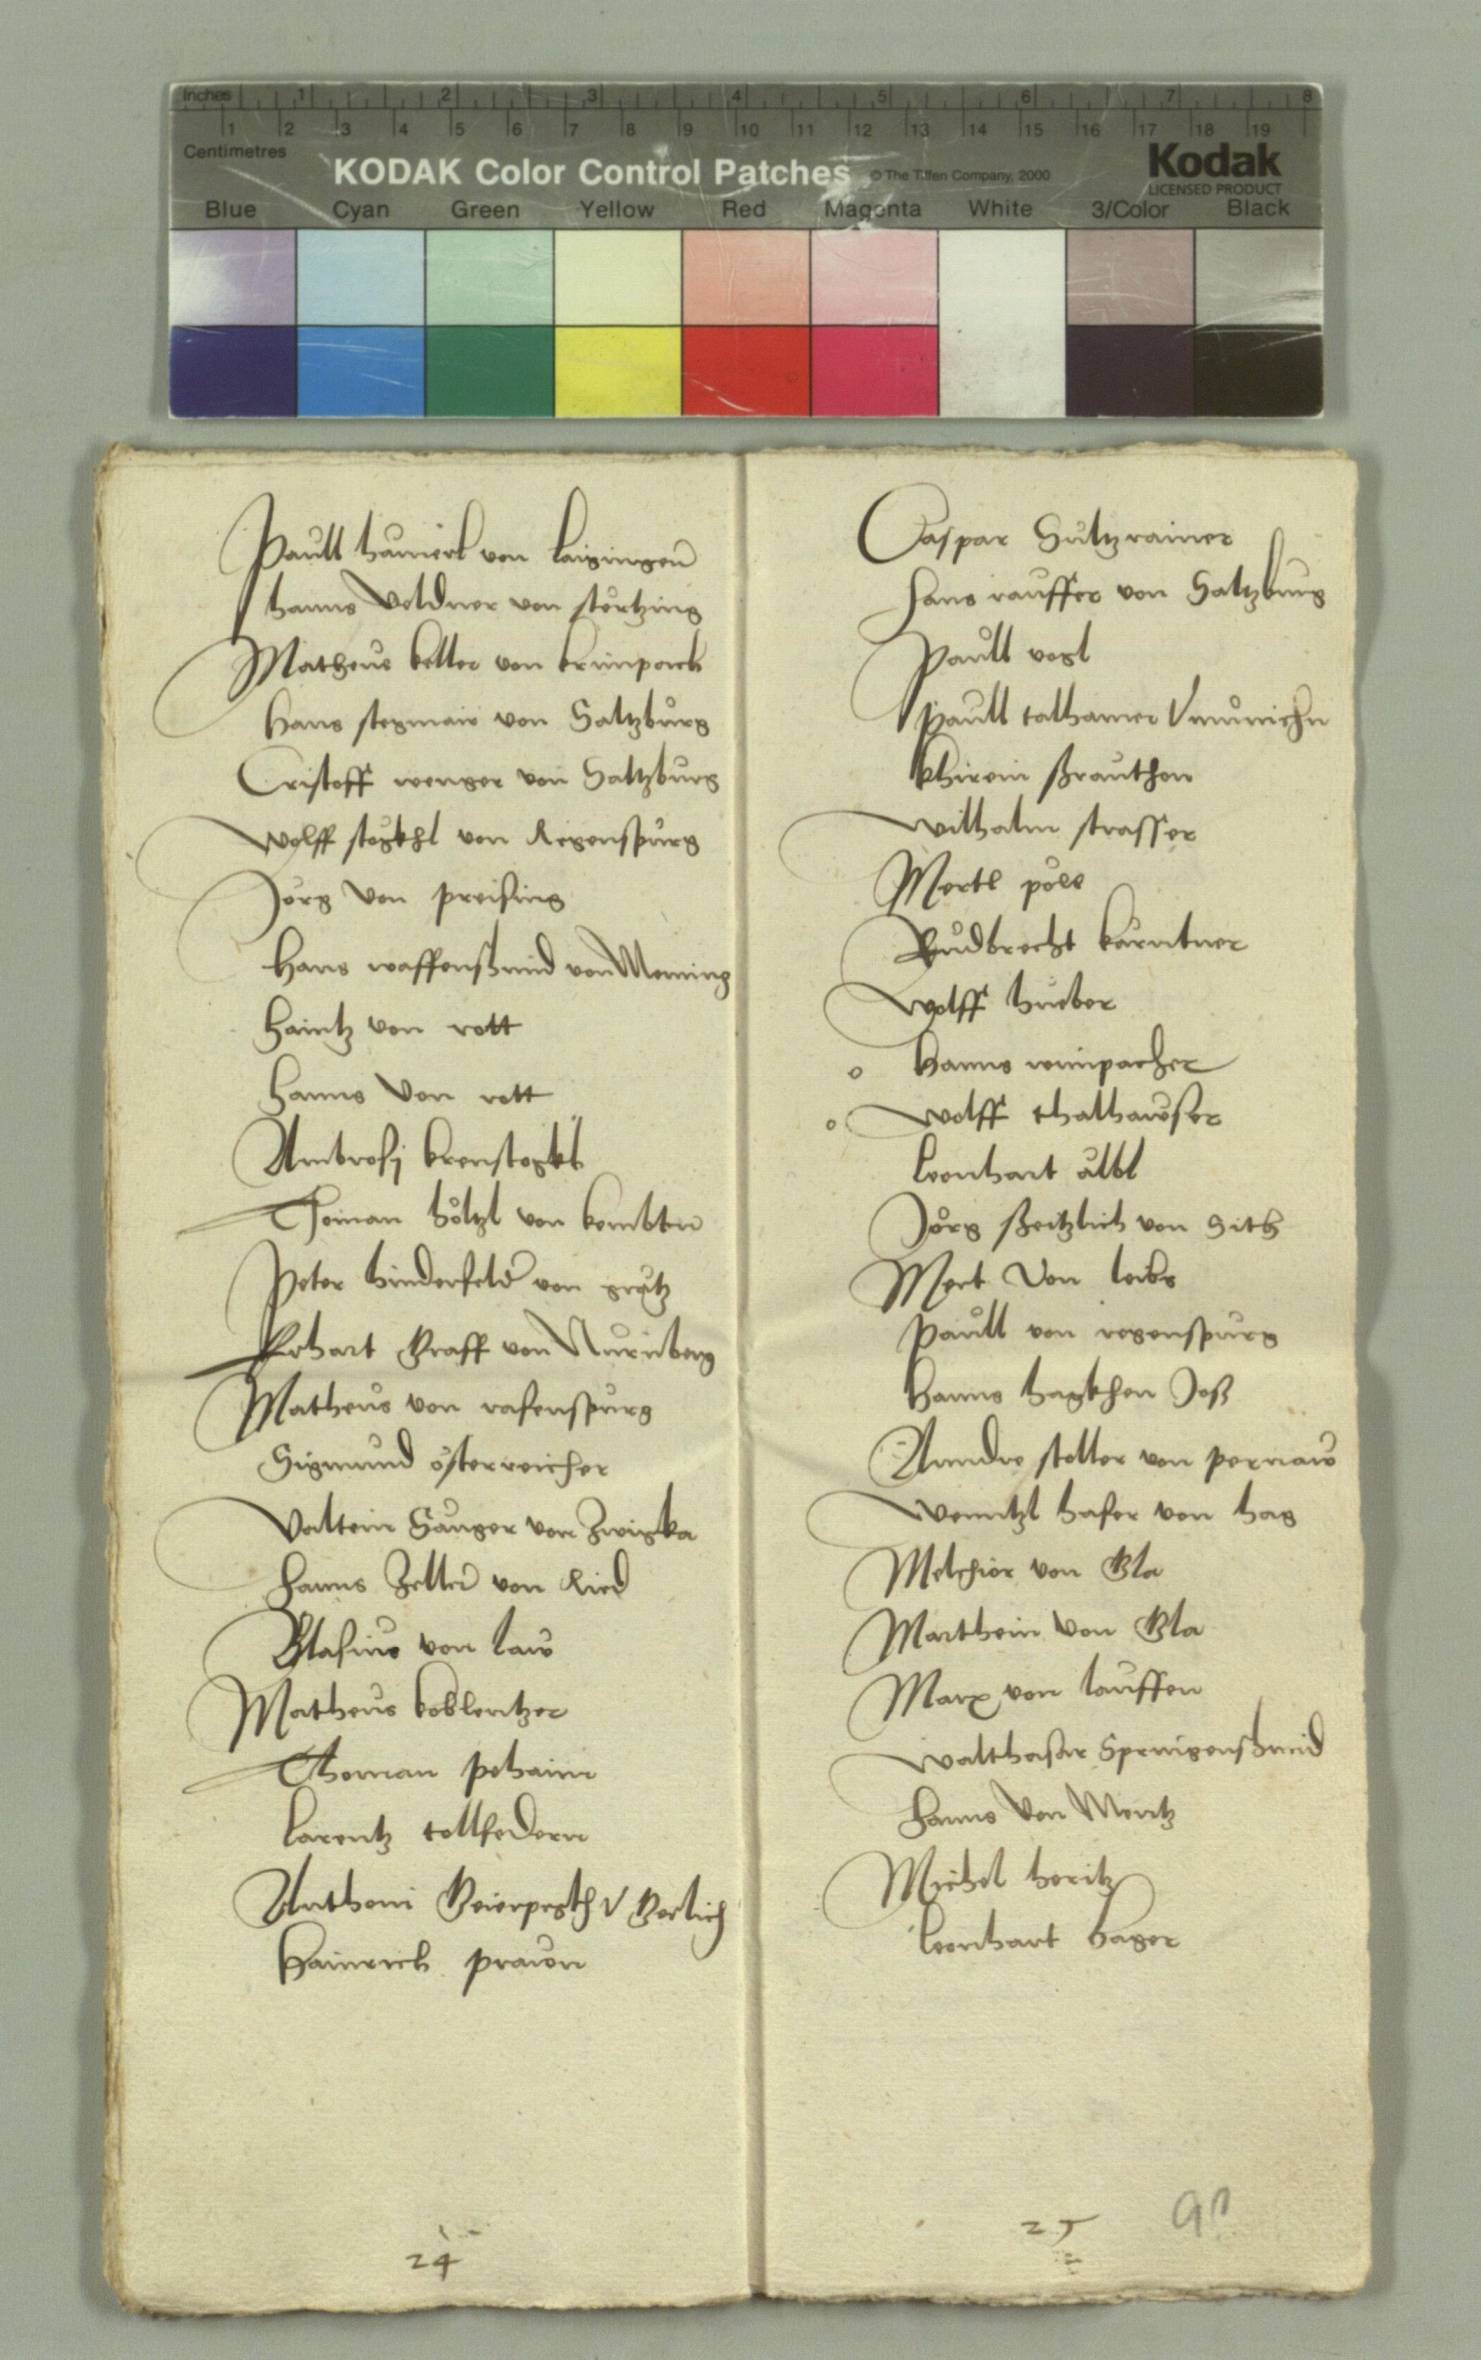 Inches 1 2 3 4 5 6 7 8
1 2 3 4 5 6 7 8 9 10 11 12 13 14 15 16 17 18 19
Centimetres
KODAK Color Control Patches © The Tiffen Company, 2000
Kodak
LICENSED PRODUCT
Blue Cyan Green Yellow Red Magenta White 3/Color Black
Paull hamerl von
hanns Veldner von störtzing
Matheus keller von krumpach
Hans stegmair von Saltzburg
Cristoff wenger von Saltzburg
Wolff stögkhl von Regenspurg
Jörg Von preising
Hans waffenschmid von Meming
Haintz von rott
Hanns Von rott
Ambrosj krenstögkl
Thoman höltzl von kembten
Peter hinderfeld von grätz
Erhart Graff von Nurnberg
Matheus von rafenspurg
Sigmund österreicher
Valtein Sanger von Zwigka
Hanns Zeller von Ried
Blasius von law
Matheus koblentzer
Thoman pehaim
Larentz tollfedern
Anthoni V Gorlich
Hainrich prawn
24
Caspar Sultzrainer
Hans rauffer von Saltzburg
Paull vogl
Paull talhamer V münichn
schrauthen
Wilhalm strasser
Mertl
Rudbrecht kärntner
Wolff hueber
o Hanns wimpacher
o Wolff thalhawser
Leonhart älbl
Jörg von
Mert Von leibs
Paull von regenspurg
Hanns hagkhen Joß
Anndre steller von pernaw
Wenntzl hafer von hag
Melchior von Gla
Marthein Von Gla
Marx von lauffen
Walthasar Sprnigenschmid
Hanns Von Mentz
Michel heritz
Leonhart hager
25